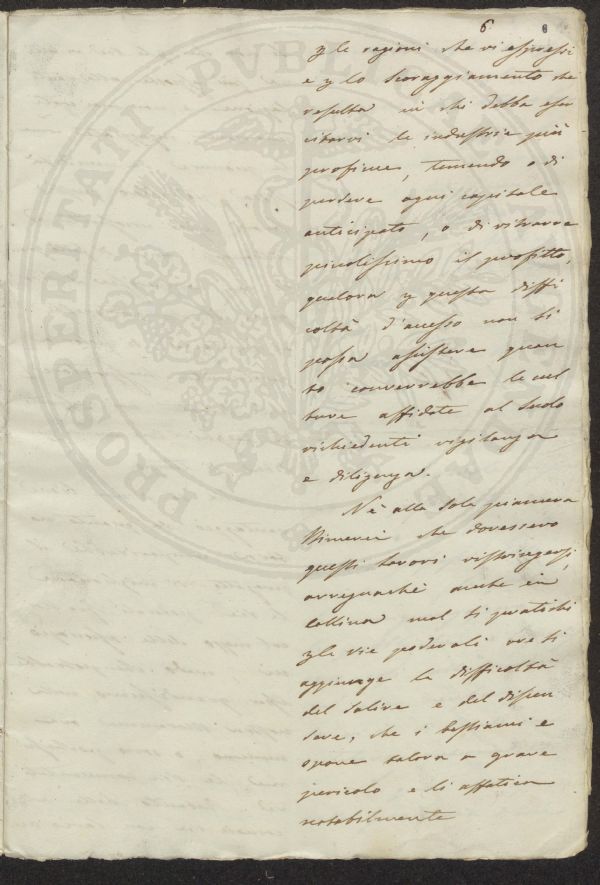 6 6
p le ragioni che vi espressi
e p lo scoraggiamento che
resulta in chi debba eser
citarvi le industrie più
proficue, temendo o di
perdere ogni capitale
anticipato, o di ritrarne
piccolissimo il profitto,
qualora p questa diffi
coltà d'accesso non si
possa assistere quan
to converrebbe le cul
ture affidate al suolo
richiedenti vigilanza
e diligenza.
Nè alla sola pianura
che dovessero
questi lavori ristringersi,
avvegnachè anche in
collina mal si pratichi
p le vie poderali ove si
aggiunge la difficoltà
del salire e del discen
dere, che i bestiami e
opone talora a grave
pericolo e li affatica
notabilmente
PROSPERITATI PVBLICAE